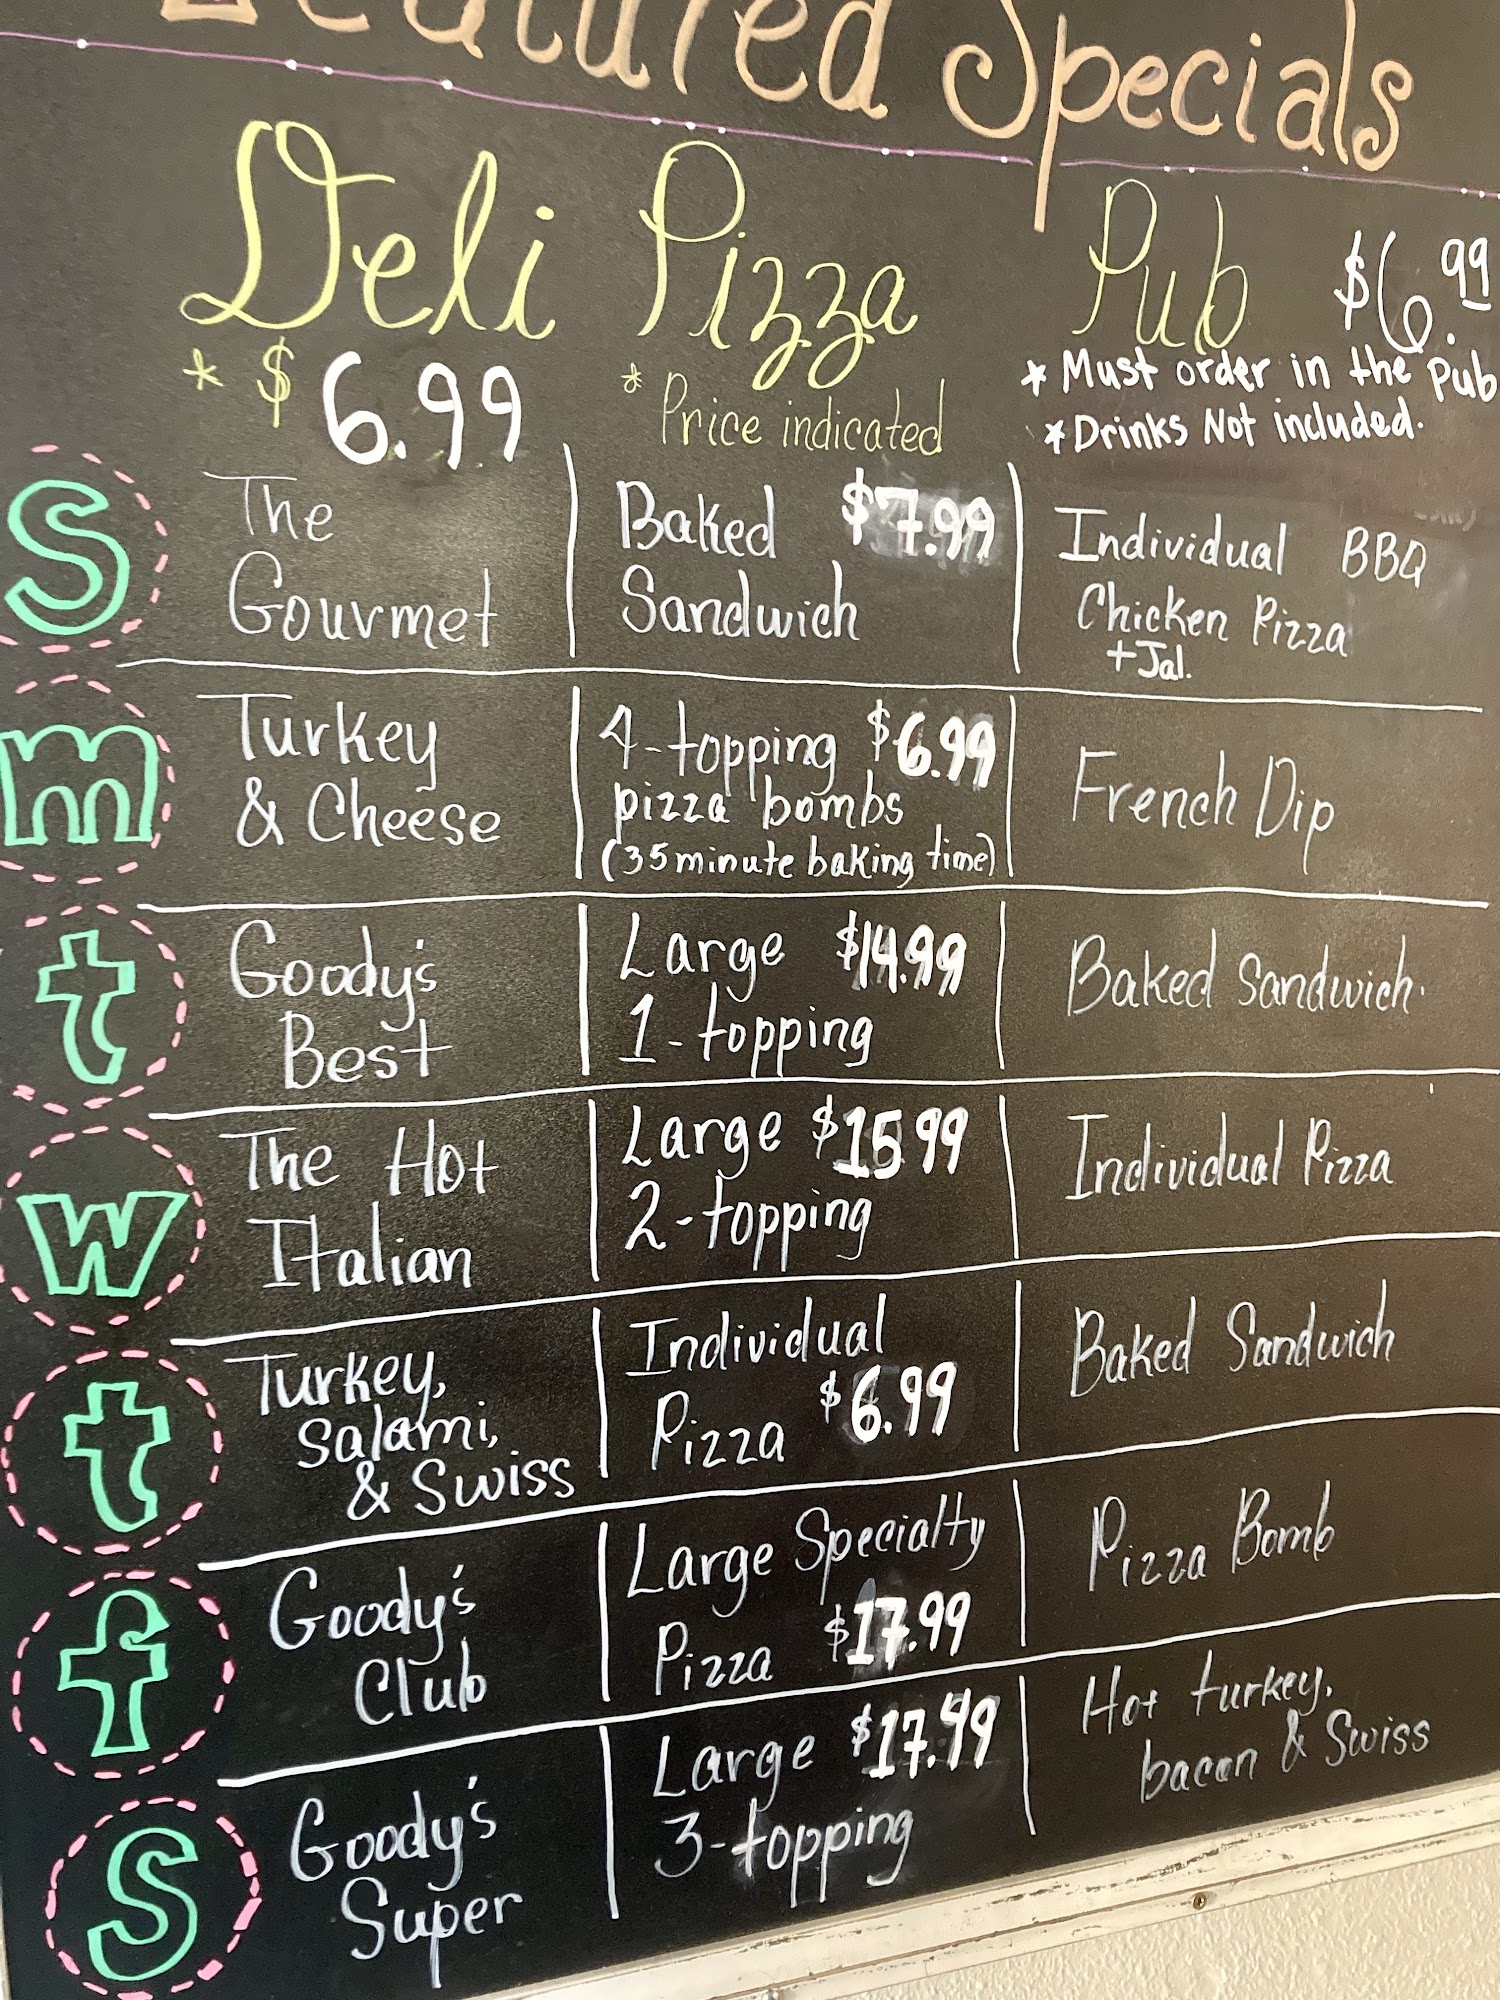 Featured Specials
Deli
* $6.99
Pizza
* Price indicated
Pub $6.99
* Must order in the pub
* Drinks Not included.
S
The
Gourmet
Baked $7.99
Sandwich
Individual BBQ
Chicken Pizza
+Jal.
m
Turkey
& Cheese
4-topping $6.99
pizza bombs
(35 minute baking time)
French Dip
t
Goody's
Best
Large $14.99
1-topping
Baked Sandwich.
w
The Hot
Italian
Large $15.99
2-topping
Individual Pizza
t
Turkey,
Salami,
& Swiss
Individual
Pizza $6.99
Baked Sandwich
f
Goody's
Club
Large Specialty
Pizza $17.99
Pizza Bomb
S
Goody's
Super
Large $17.49
3-topping
Hot turkey,
bacon & Swiss